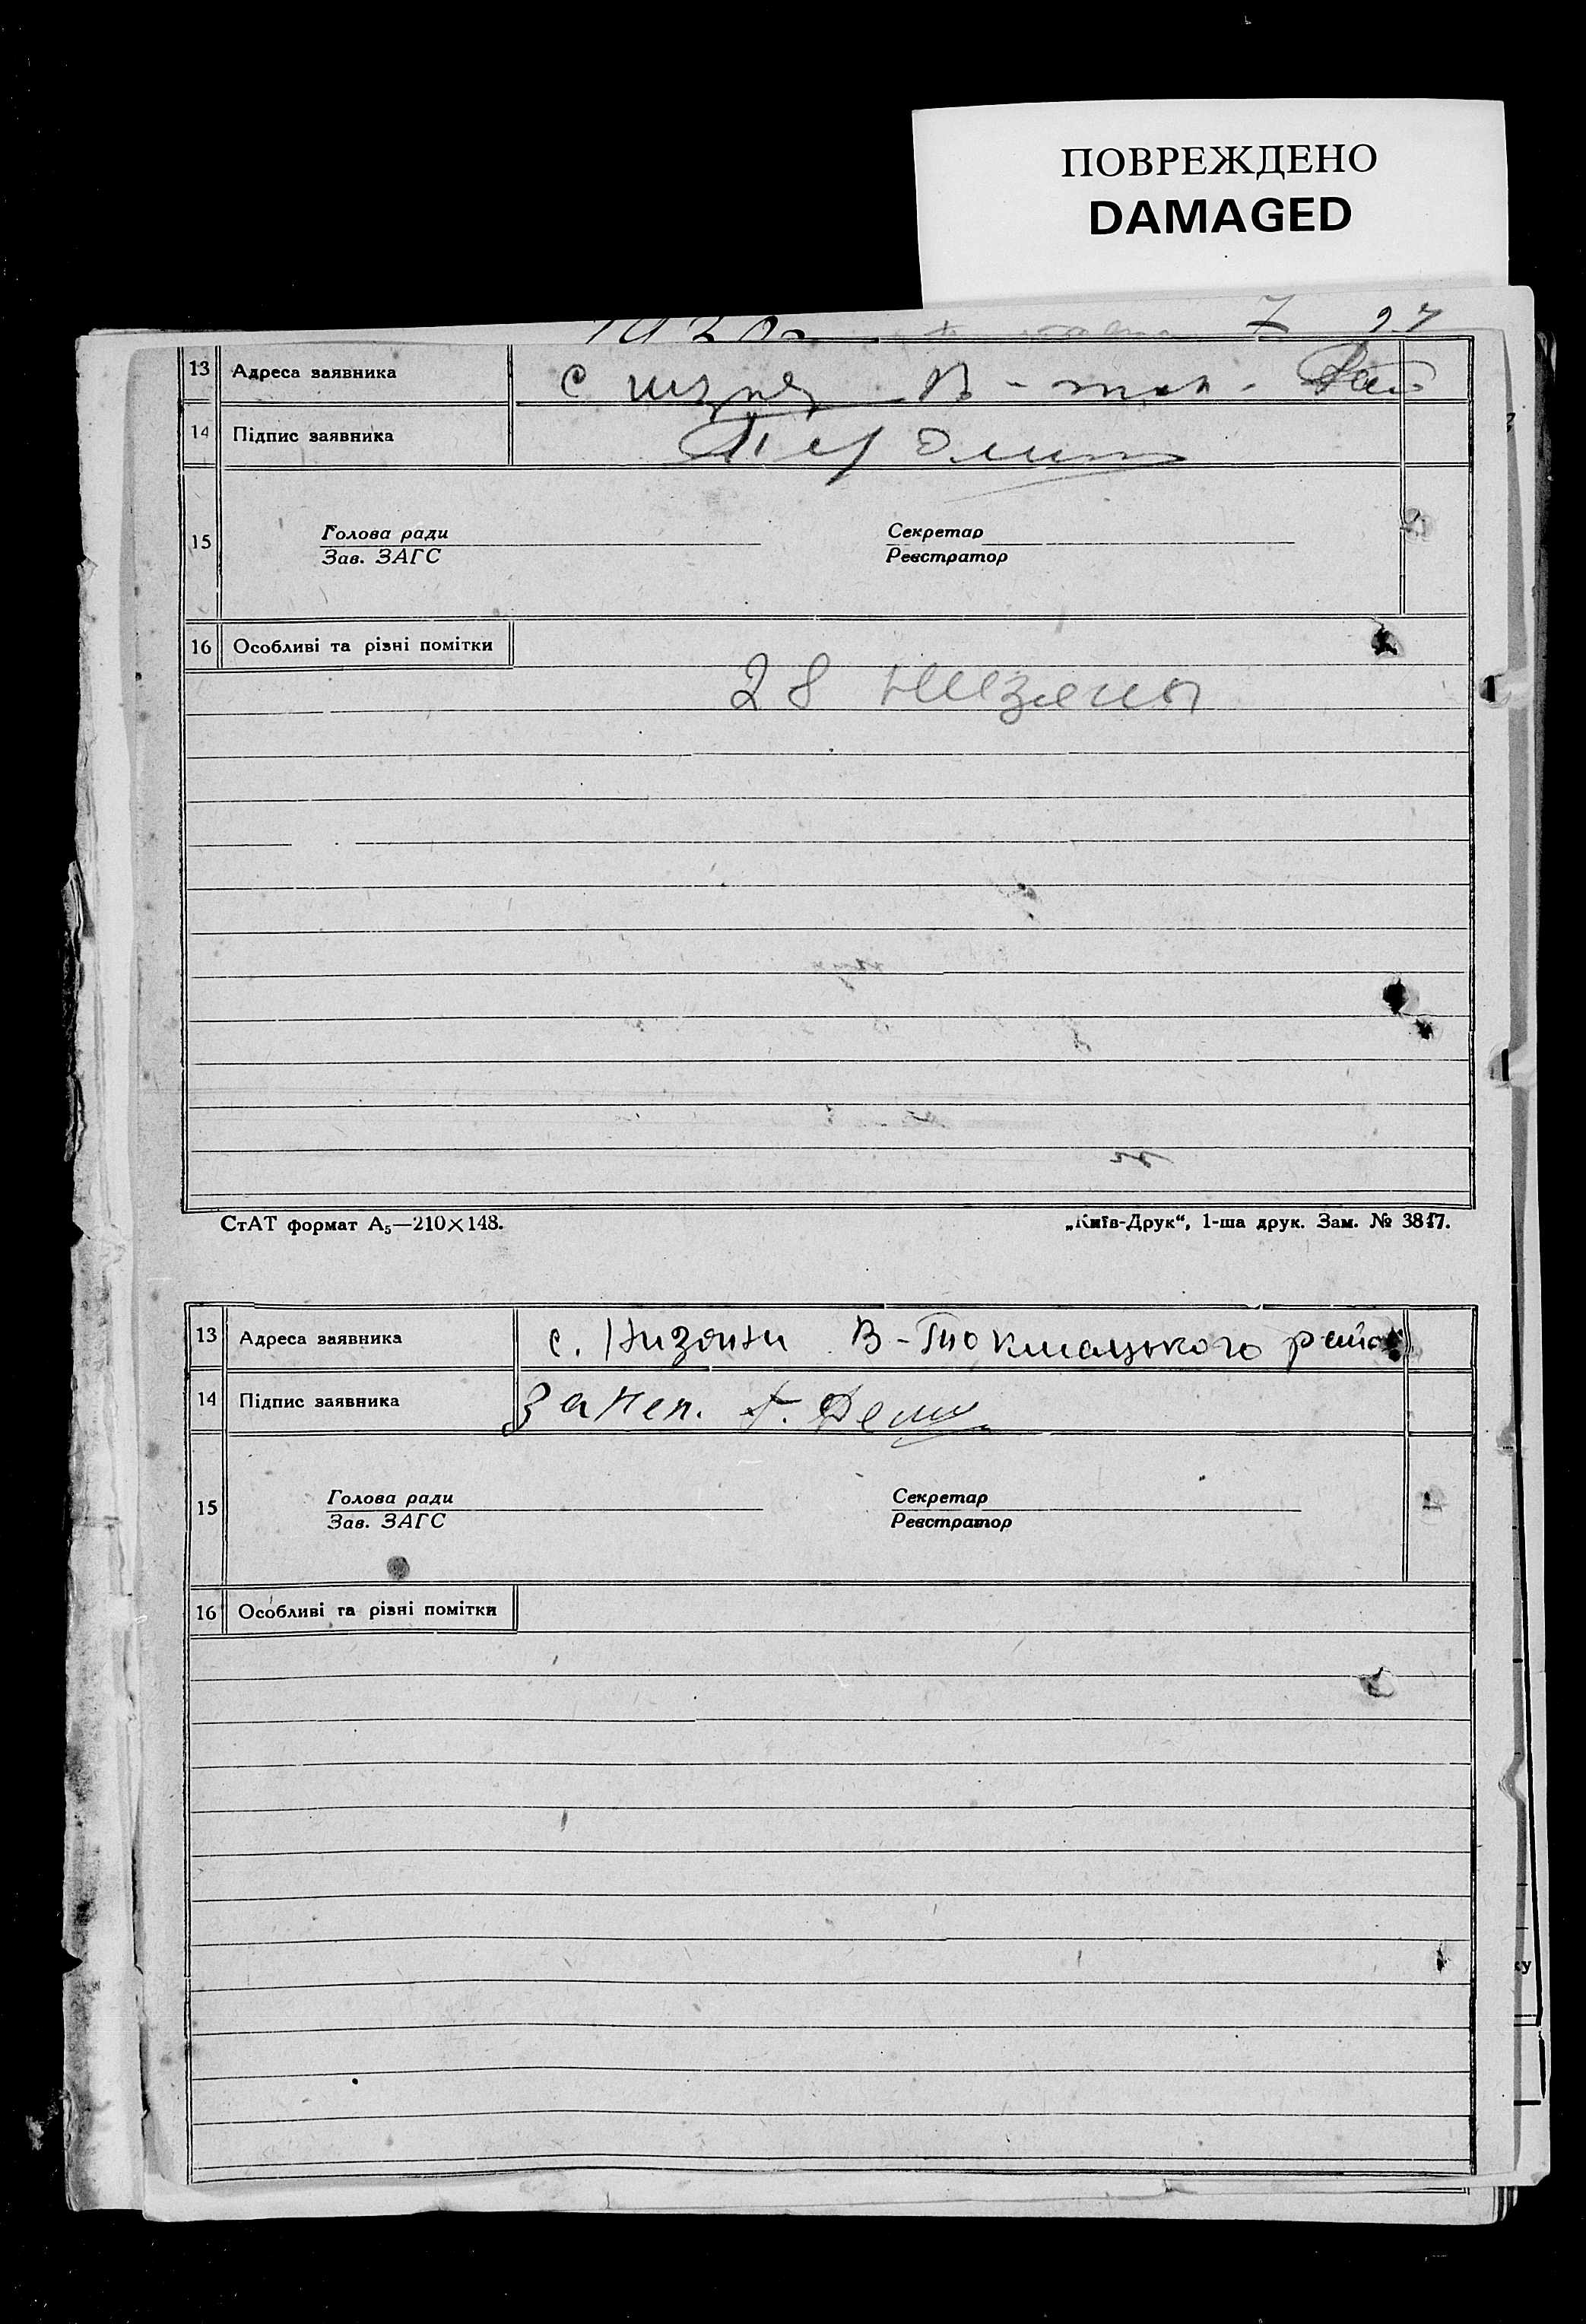 ПОВРЕЖДЕНО
DAMAGED
13 Адреса заявника с В-
14 Підпис заявника
15 Голова ради Секретар
Зав. ЗАГС Реєстратор
16 Особливі та різні помітки
28 Низяны
СтАТ формат А₅—210×148. „Київ-Друк“, 1-ша друк. Зам. № 3847.
13 Адреса заявника с. Низяни В-Токмацького
14 Підпис заявника
15 Голова ради Секретар
Зав. ЗАГС Реєстратор
16 Особливі та різні помітки